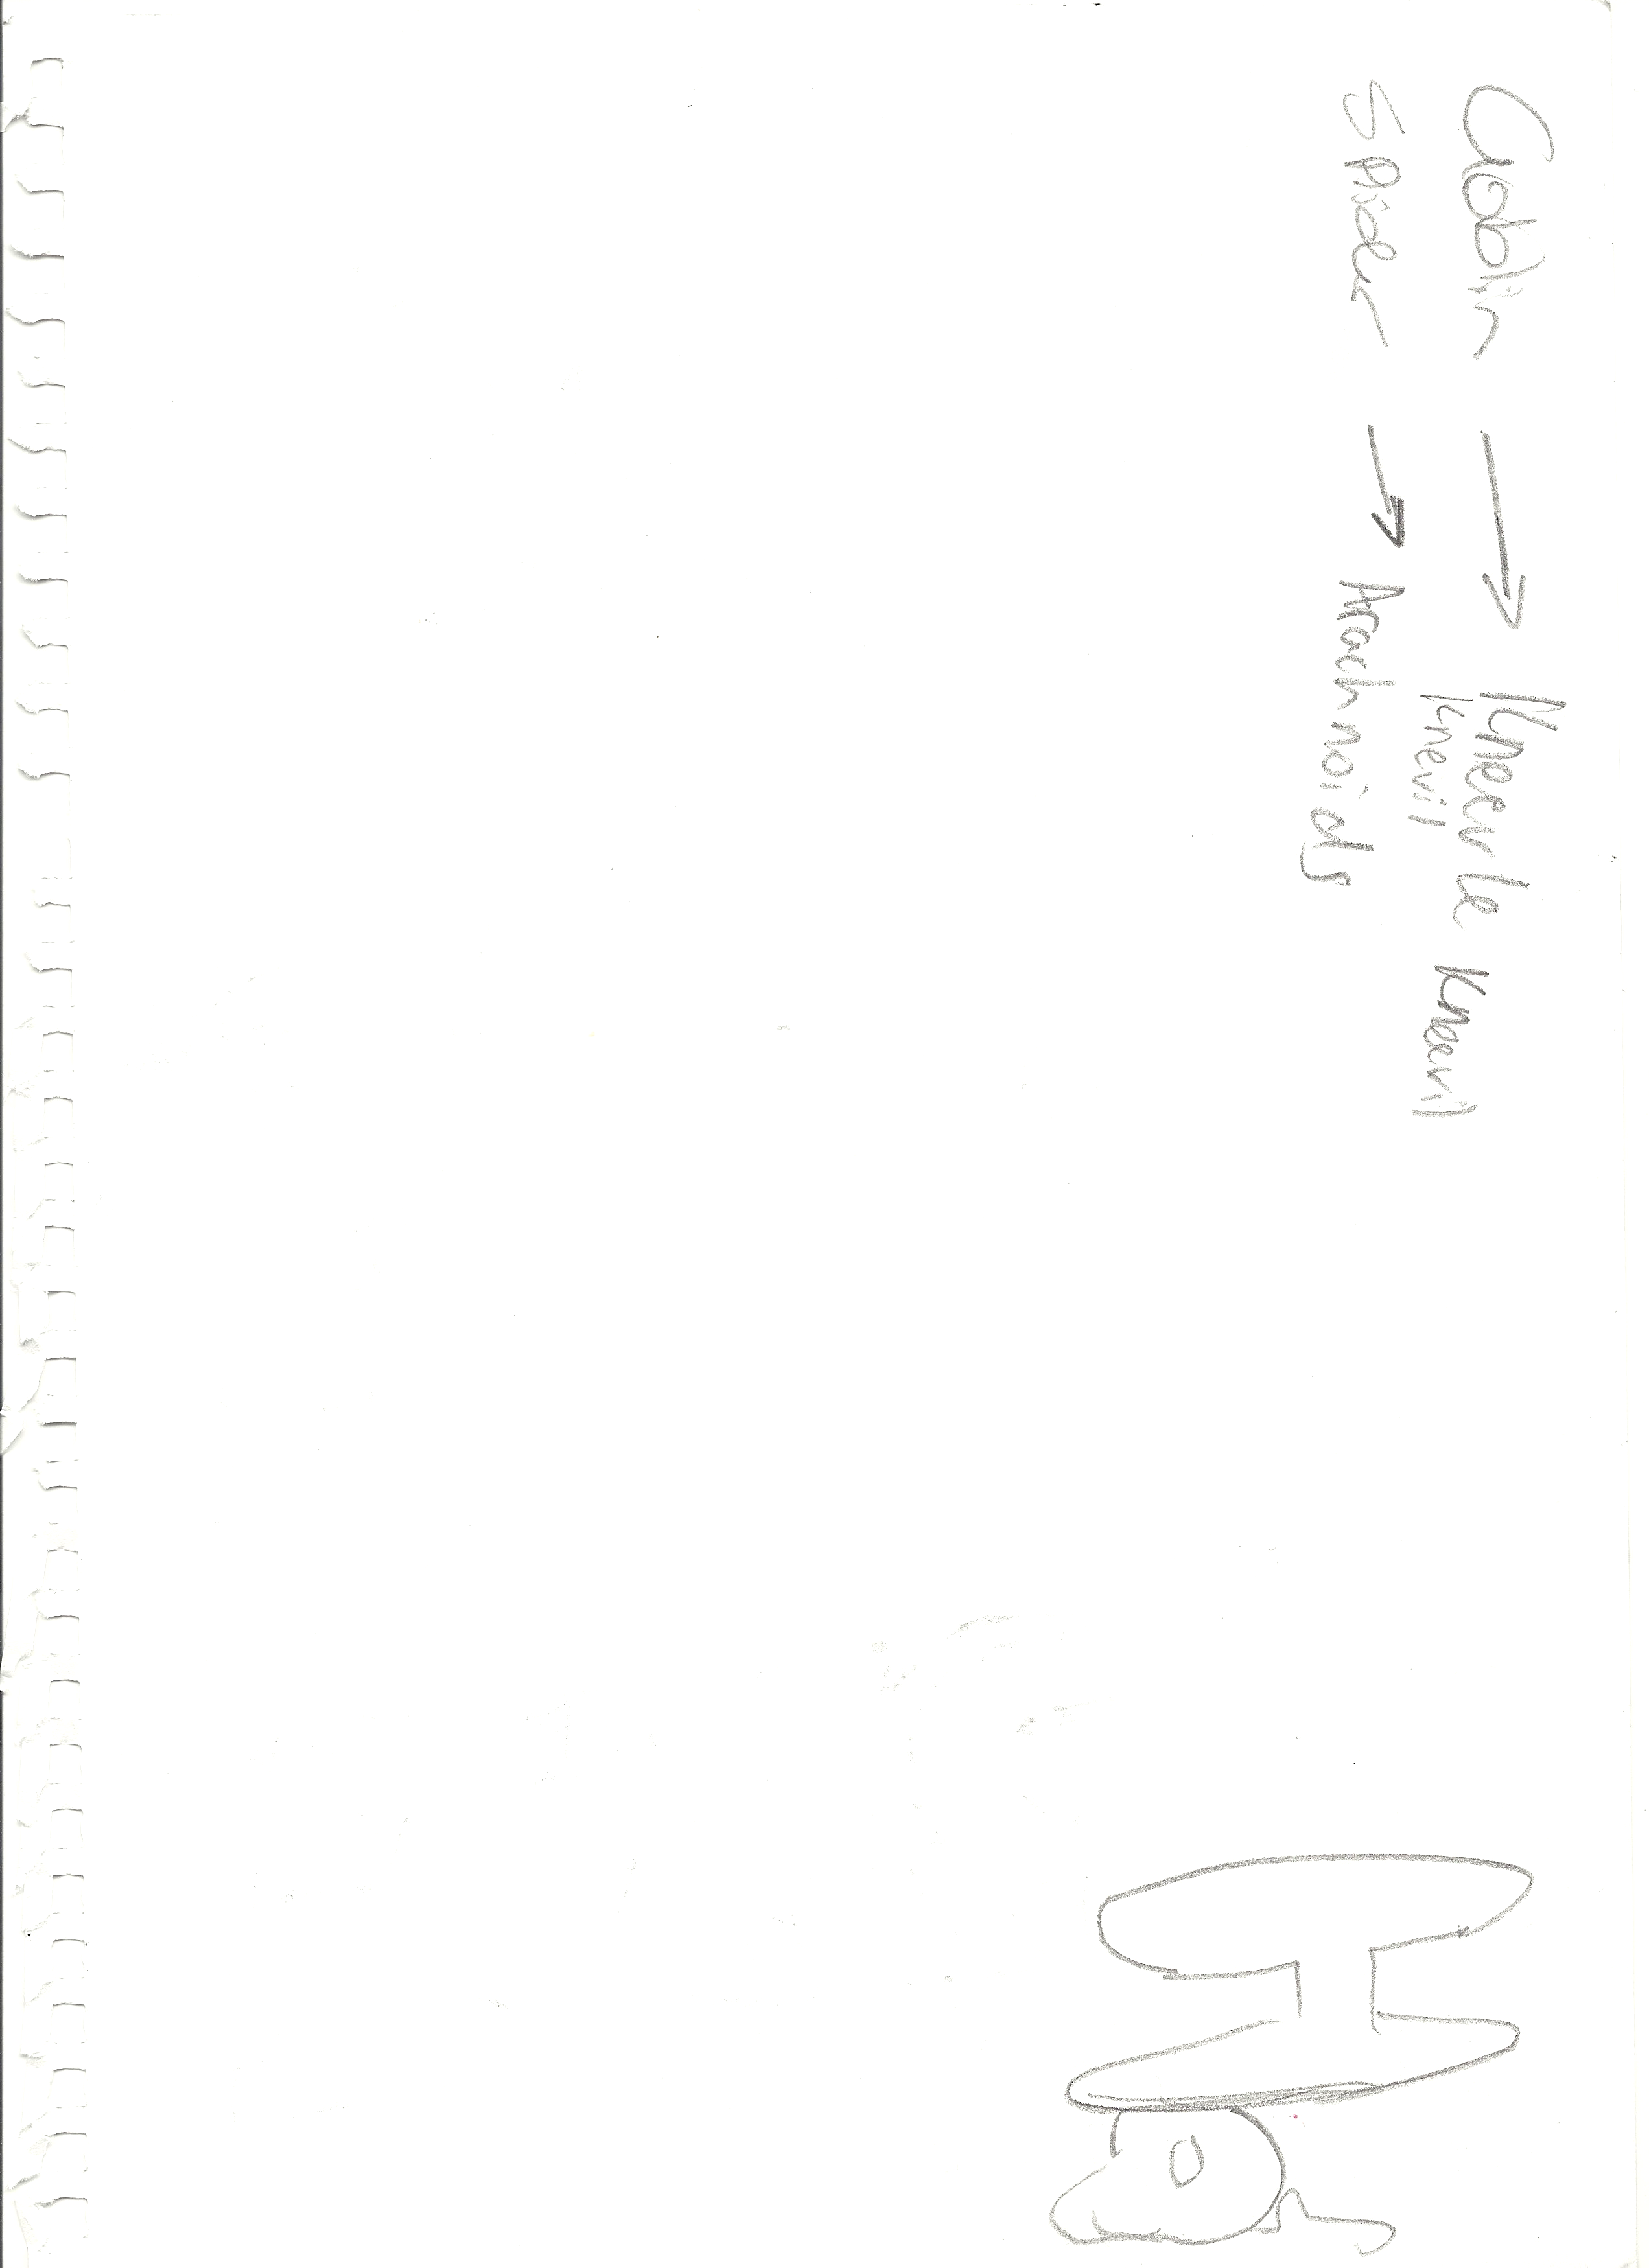 Goblin → Kneevle Kneevil
Knevil
Spider → Arachnoids